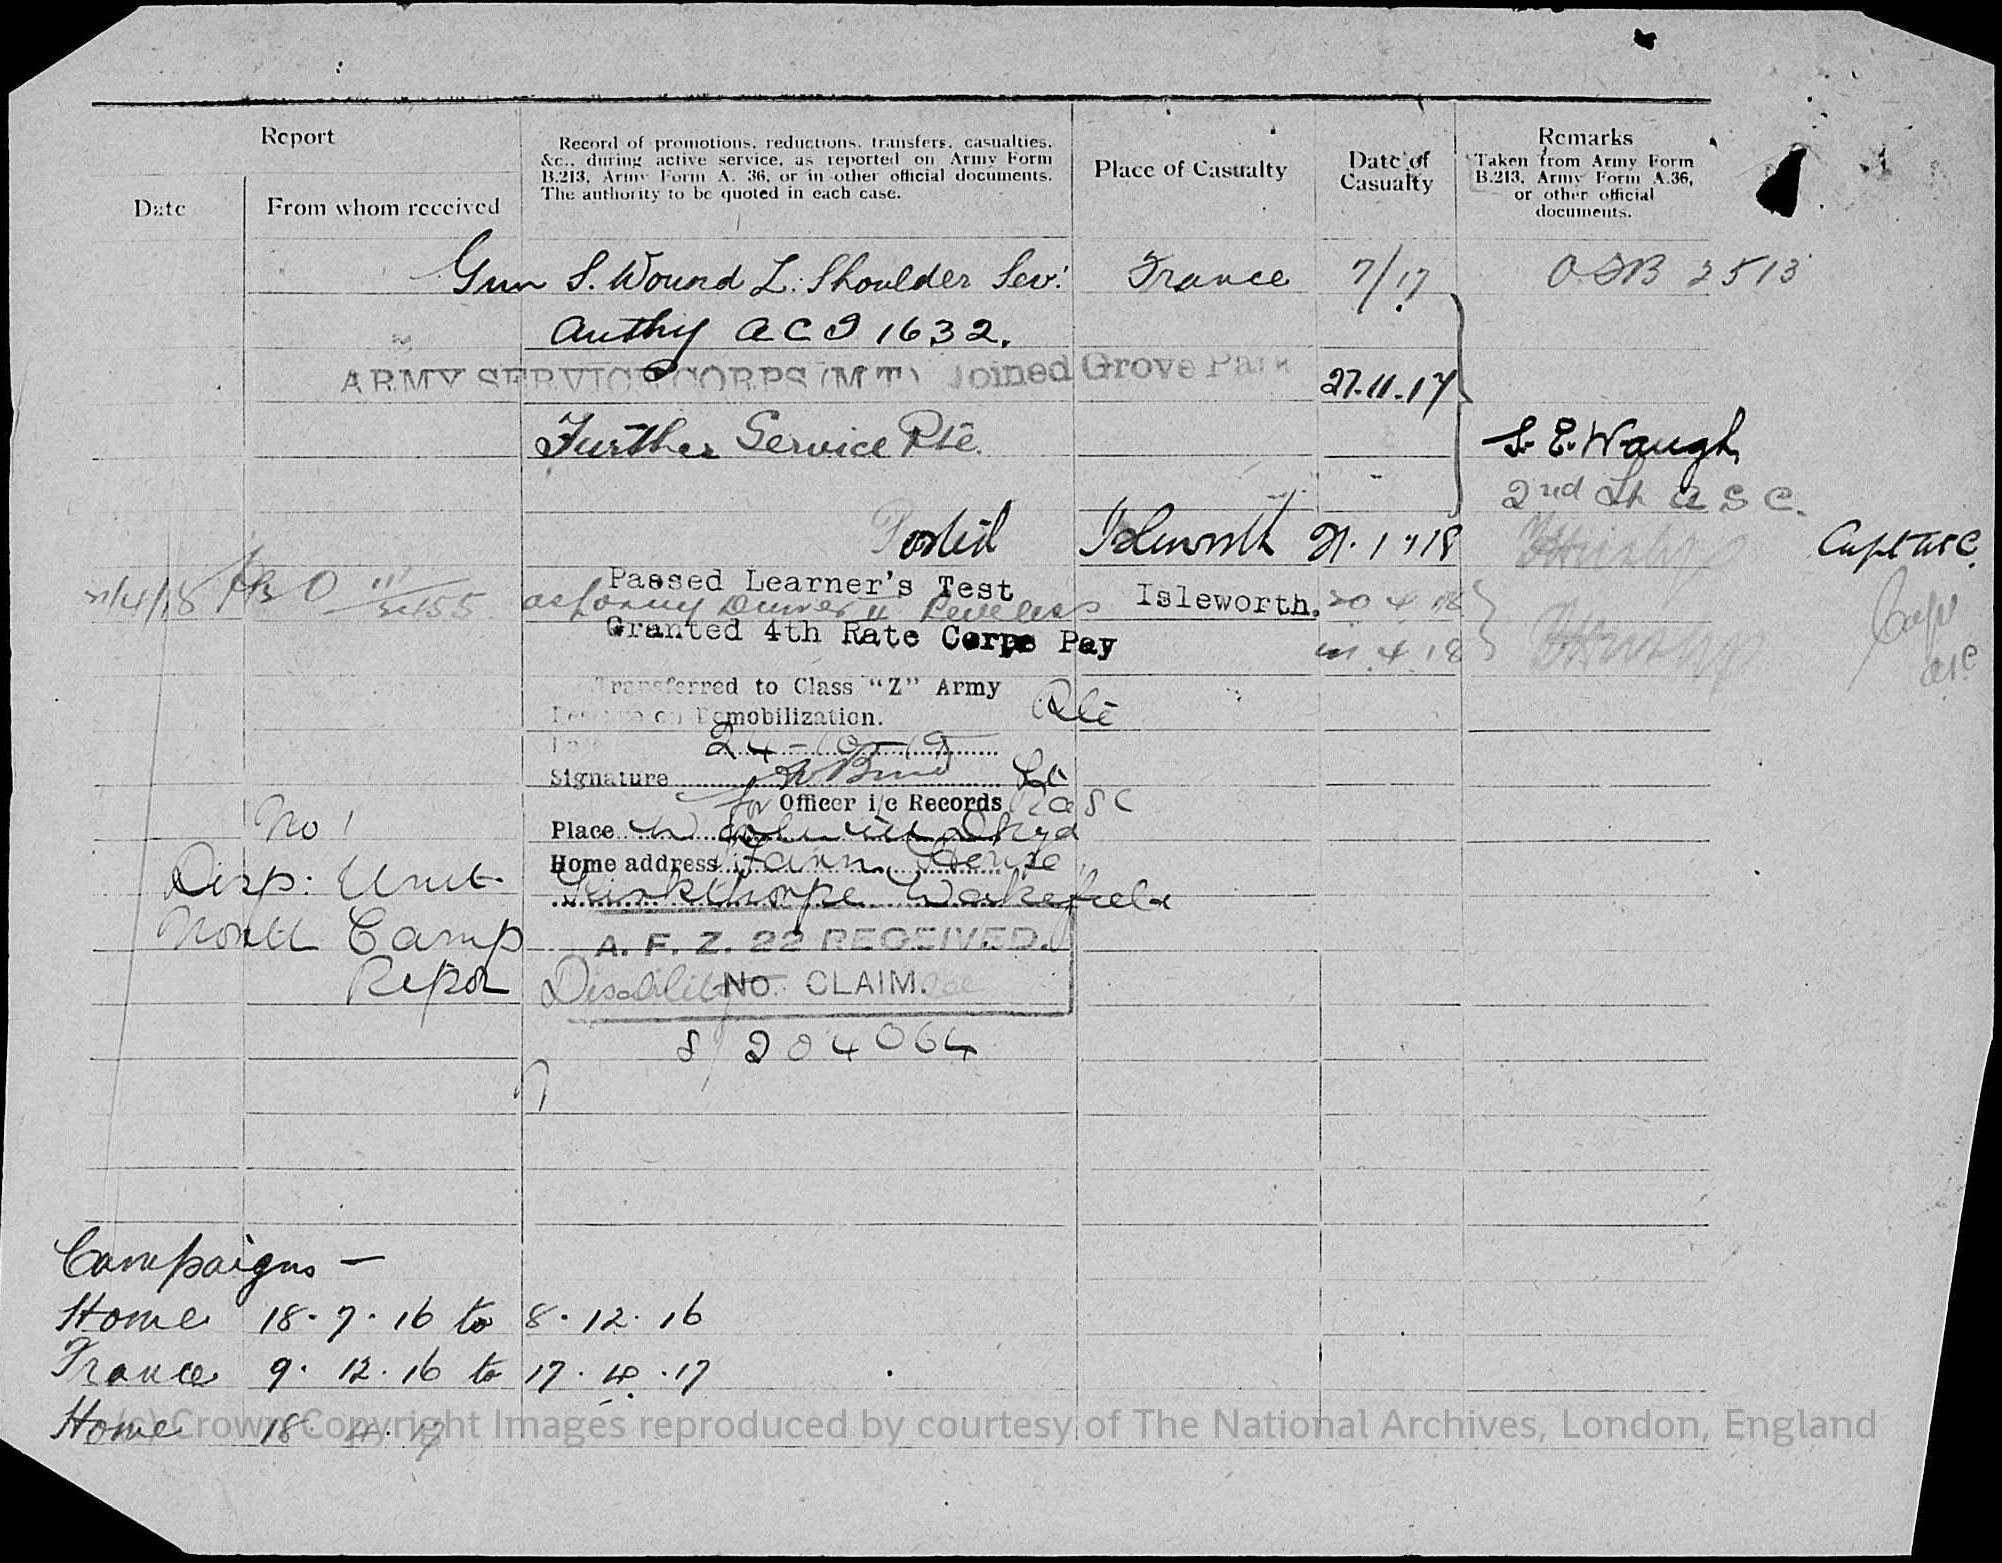 Report
Date
From whom received
Record of promotions, reductions, transfers, casualties,
&c., during active service, as reported on Army Form
B.213, Army Form A. 36, or in other official documents.
The authority to be quoted in each case.
Place of Casualty
Date of
Casualty
Remarks
Taken from Army Form
B.213, Army Form A.36,
or other official
documents.
Gun S. Wound L. Shoulder Sev. France 7/17 2513
Authy ACI 1632.
ARMY SERVICE CORPS (M.T.) Joined Grove Park 27.11.17
Further Service Pte. S. E. Waugh
2nd Lt A S C.
Posted Isleworth 21.1.18 Capt ASC.
Passed Learner's Test Isleworth.
Granted 4th Rate Corps Pay
Capt
ASC
Transferred to Class "Z" Army
Reserve on Demobilization.
Date 24-10-19
Signature Lt
for Officer i/c Records RASC
Place Woolwich Dkyd
No 1
Home address Farm House
Disp: Unit
Kirkthorpe Wakefield
North Camp
A. F. Z. 22 RECEIVED.
Ripon
Disability NO CLAIM.
S/204064
Campaigns —
Home 18.7.16 to 8.12.16
France 9.12.16 to 17.4.17
Home 18
(c) Crown Copyright Images reproduced by courtesy of The National Archives, London, England